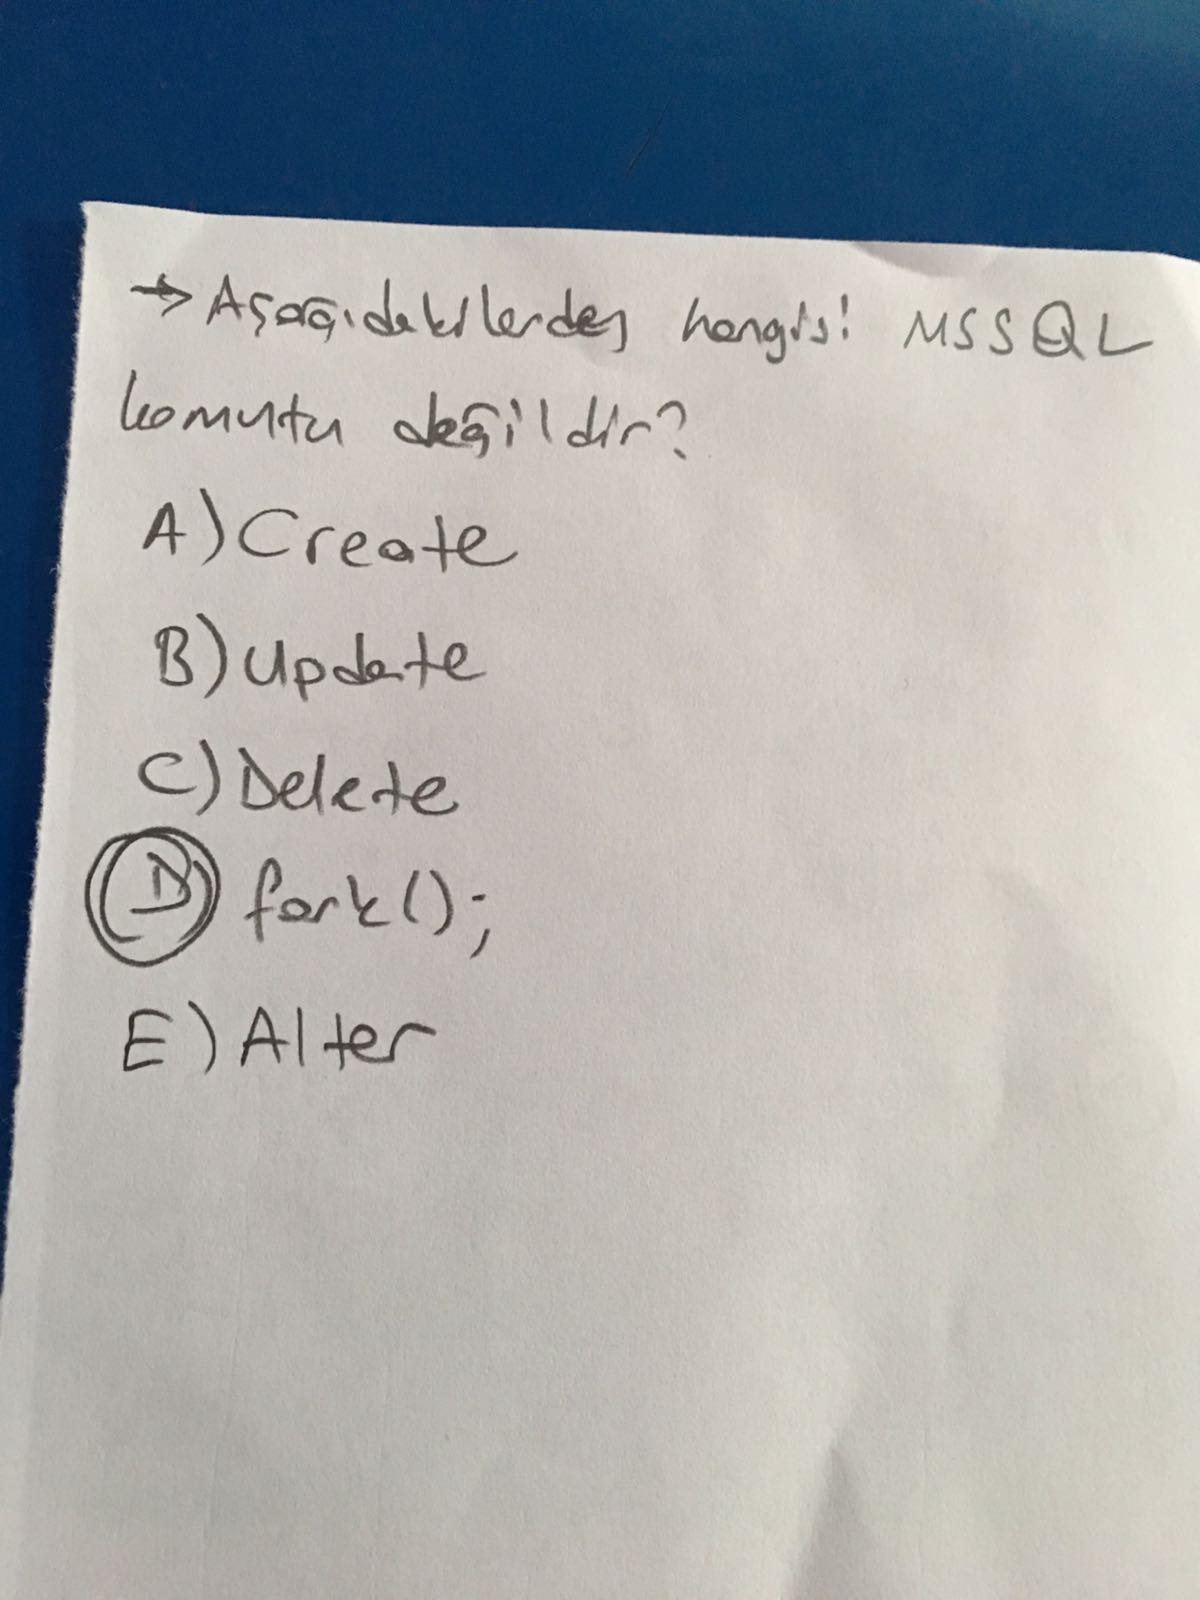 → Aşağıdakilerden hangisi MSSQL
komutu değildir?
A) Create
B) Update
C) Delete
D) fork();
E) Alter